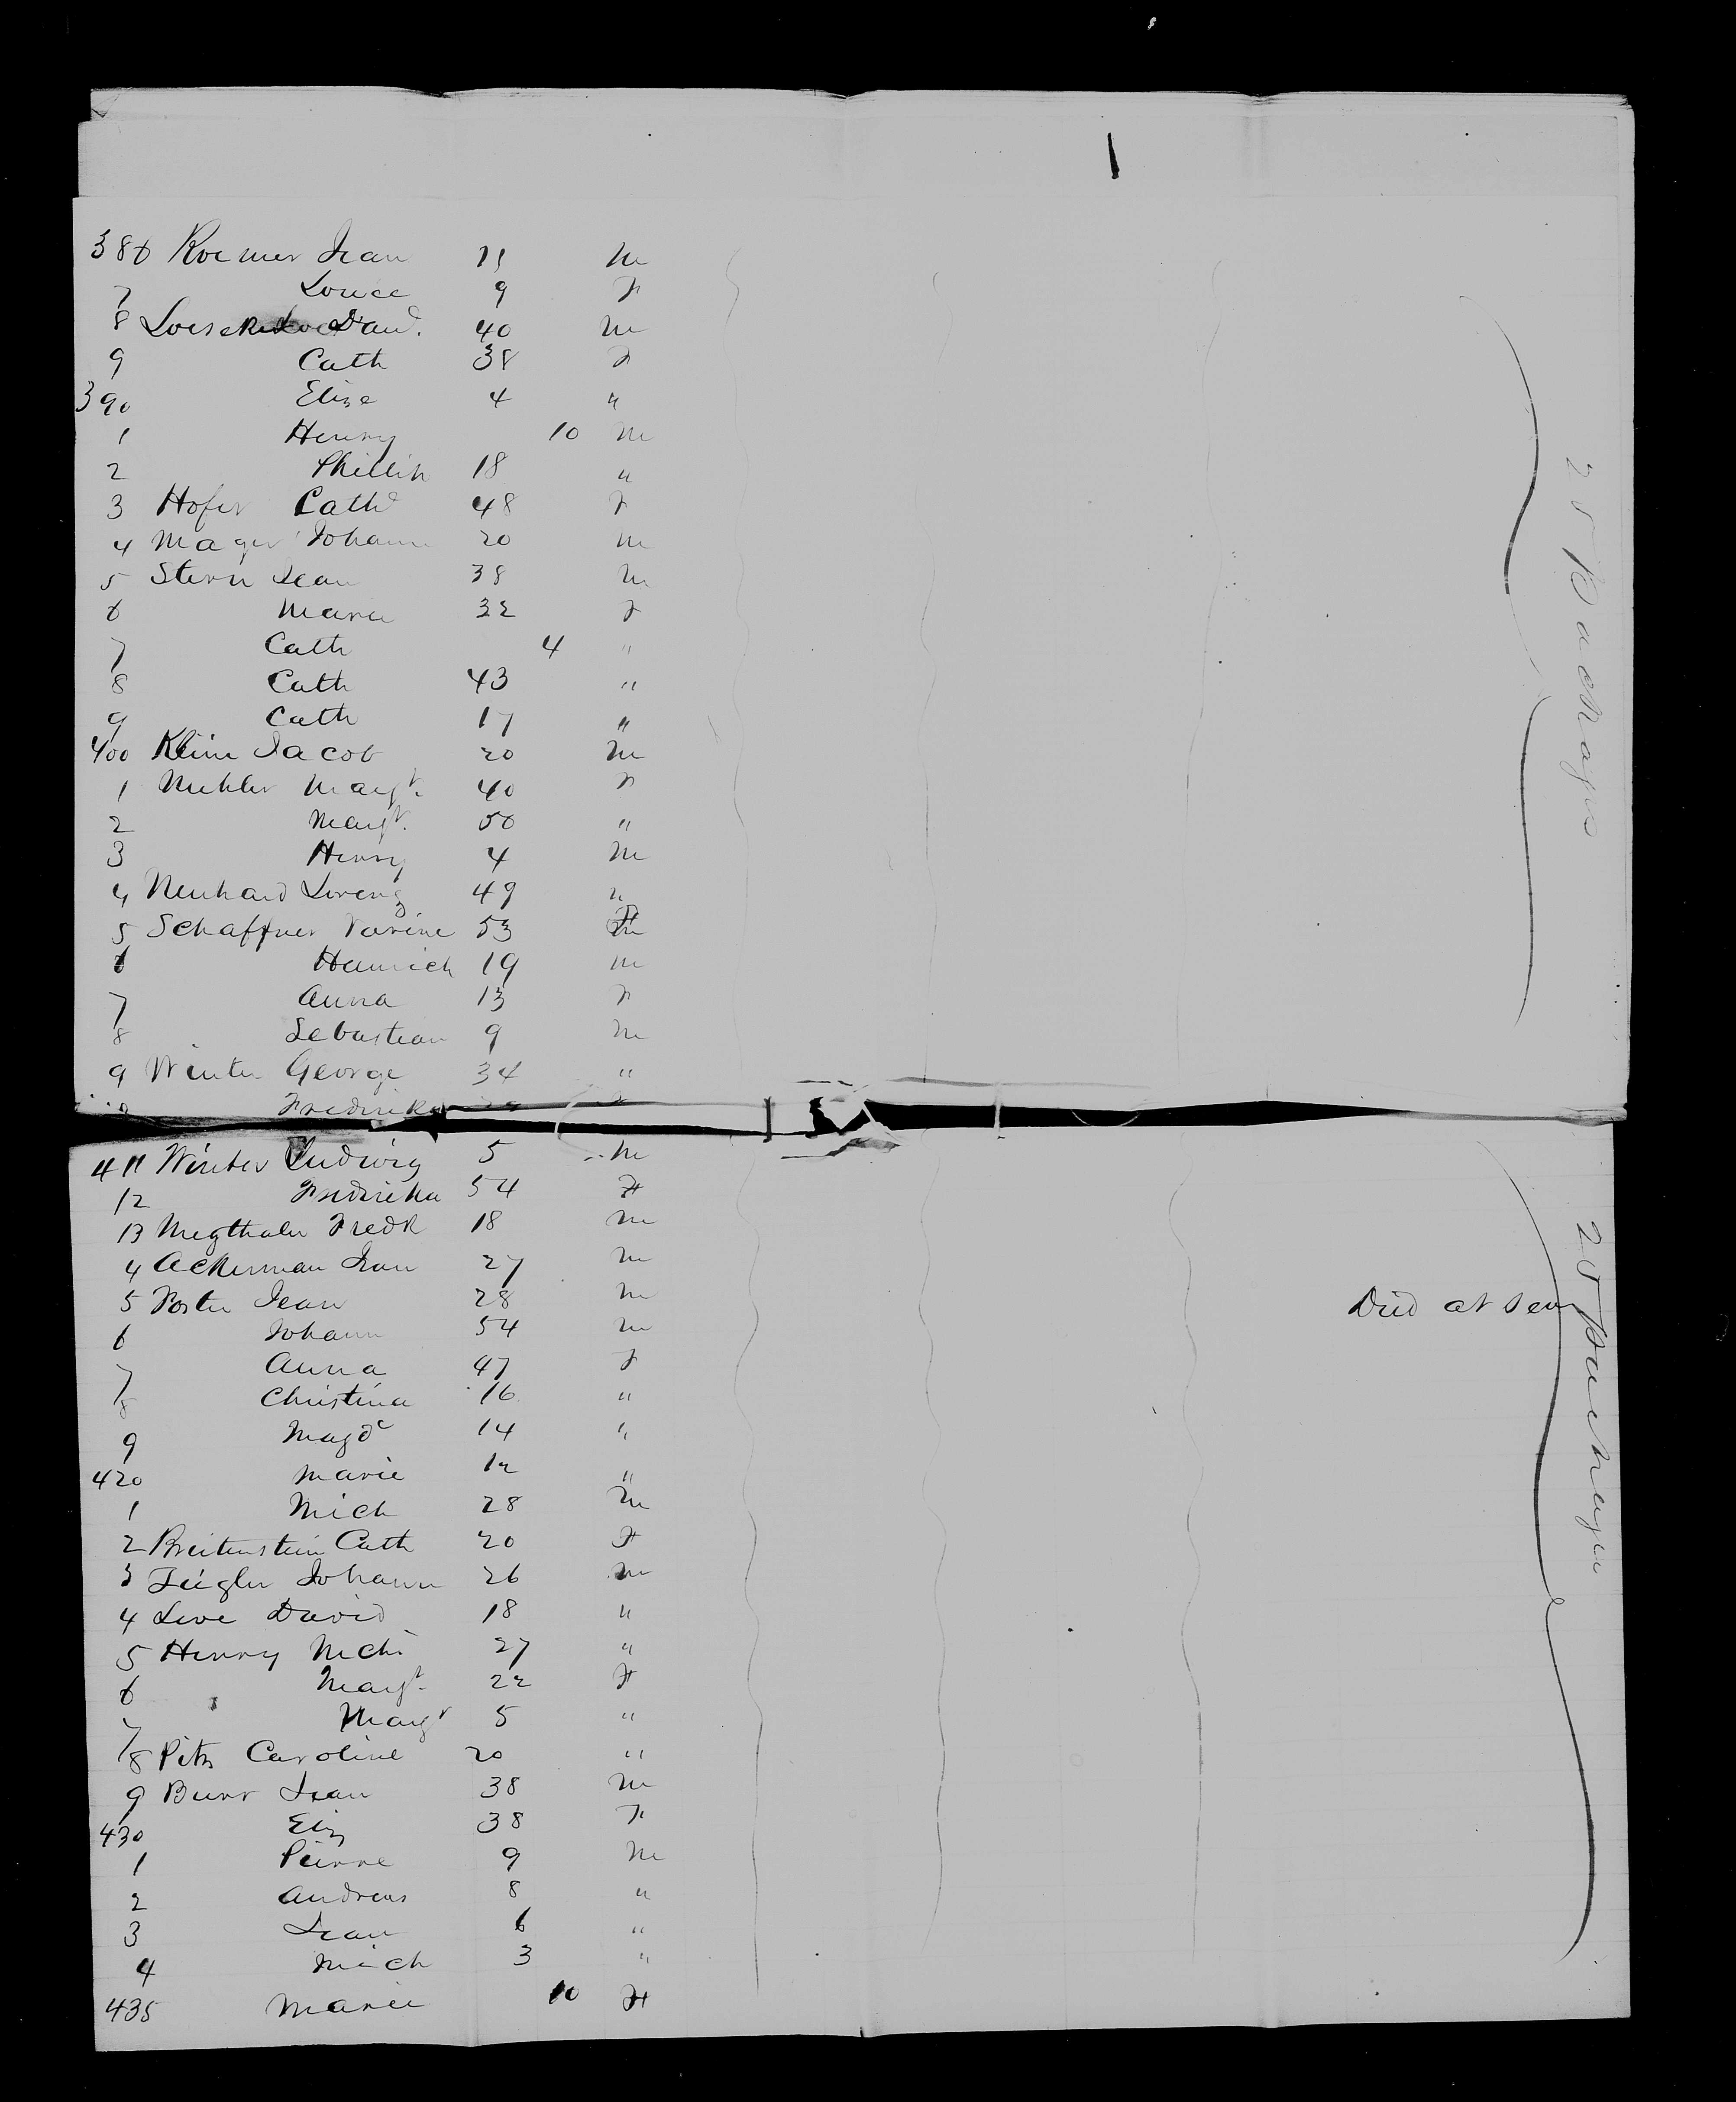 386 Roemer Jean 11 m
7 Louce 9 F
8 Loeseke Dan'd. 40 m
9 Cath 38 F
390 Elise 4 "
1 Henry 10 m
2 Phillip 18 "
3 Hofer Cathe 48 F
4 Mager Johann 20 m
5 Stern Jean 38 m
6 Marie 32 F
7 Cath 4 "
8 Cath 43 "
9 Cath 17 "
400 Klein Jacob 20 m
1 Margt. 40 F
2 Margt. 50 "
3 Henry 4 m
4 Neuhard Lorenz 49 "
5 Schaffner 53 F
6 Heinrich 19 m
7 Anna 13 F
8 Sebastian 9 m
9 Winter George 34 "
Fredrika F
411 Winter Ludwig 5 m
12 Fredrika 54 F
13 Megthaler Fredk 18 m
4 Ackerman Jean 27 m
5 Jean 28 m Died at sea
6 Johann 54 m
7 Anna 47 F
8 Christina 16 "
9 Magde 14 "
420 Marie 12 "
1 Mich 28 m
2 Breitenstein Cath 20 F
3 Johann 26 m
4 Leve David 18 "
5 Henry 27 "
6 Margt. 22 F
7 Margt 5 "
8 Pitz Caroline 20 "
9 Burr Jean 38 m
430 Eliz 38 F
1 Pierre 9 m
2 Andreas 8 "
3 Jean 6 "
4 Mich 3 "
435 Marie 10 F
25 Packages
25 packages